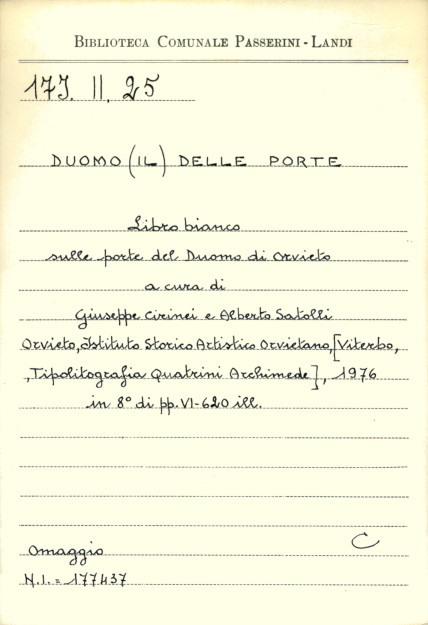 BIBLIOTECA COMUNALE PASSERINI - LANDI
17J. II. 25
DUOMO (IL) DELLE PORTE
Libro bianco
sulle porte del Duomo di Orvieto
a cura di
Giuseppe Cirinei e Alberto Satolli
Orvieto, Istituto Storico Artistico Orvietano, [Viterbo,
, Tipolitografia Quatrini Archimede], 1976
in 8° di pp. VI-620 ill.
Omaggio
C
N.I. = 177437